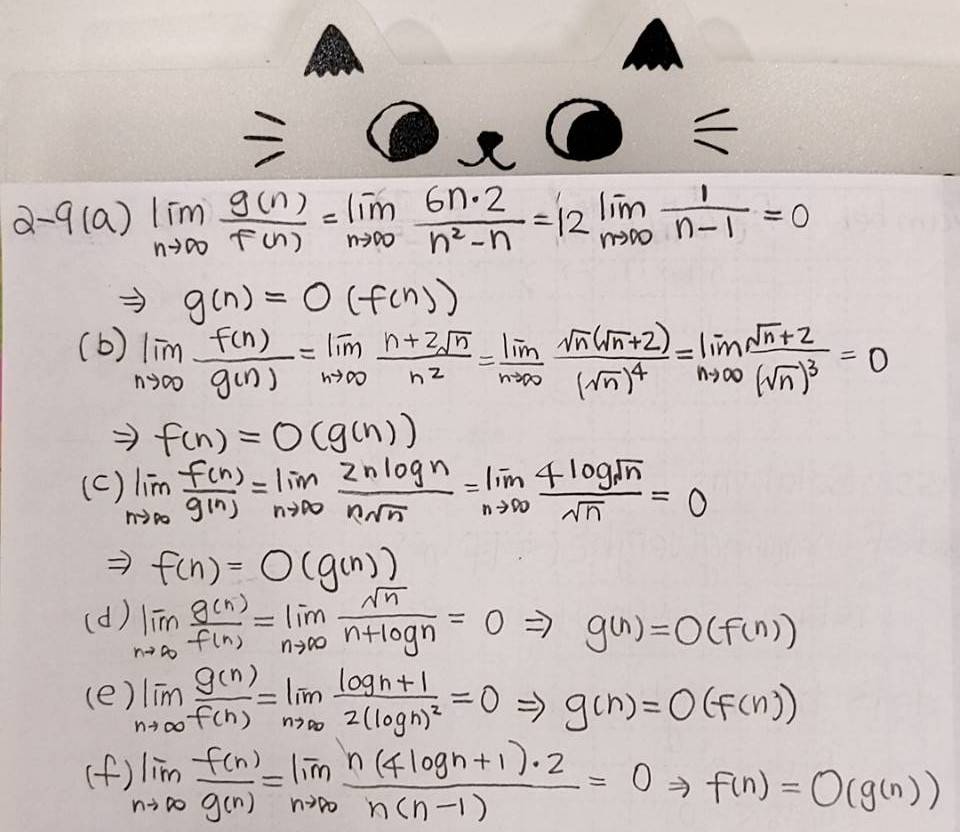 2-9(a) lim n→∞ g(n)/f(n) = lim n→∞ 6n·2/n²-n = 12 lim n→∞ 1/n-1 = 0
⇒ g(n) = O(f(n))
(b) lim n→∞ f(n)/g(n) = lim n→∞ n+2√n/n² = lim n→∞ √n(√n+2)/(√n)⁴ = lim n→∞ √n+2/(√n)³ = 0
⇒ f(n) = O(g(n))
(c) lim n→∞ f(n)/g(n) = lim n→∞ 2n log n/n√n = lim n→∞ 4 log√n/√n = 0
⇒ f(n) = O(g(n))
(d) lim n→∞ g(n)/f(n) = lim n→∞ √n/n+logn = 0 ⇒ g(n)=O(f(n))
(e) lim n→∞ g(n)/f(n) = lim n→∞ logn+1/2(logn)² = 0 ⇒ g(n)=O(f(n))
(f) lim n→∞ f(n)/g(n) = lim n→∞ n(4logn+1)·2/n(n-1) = 0 ⇒ f(n) = O(g(n))